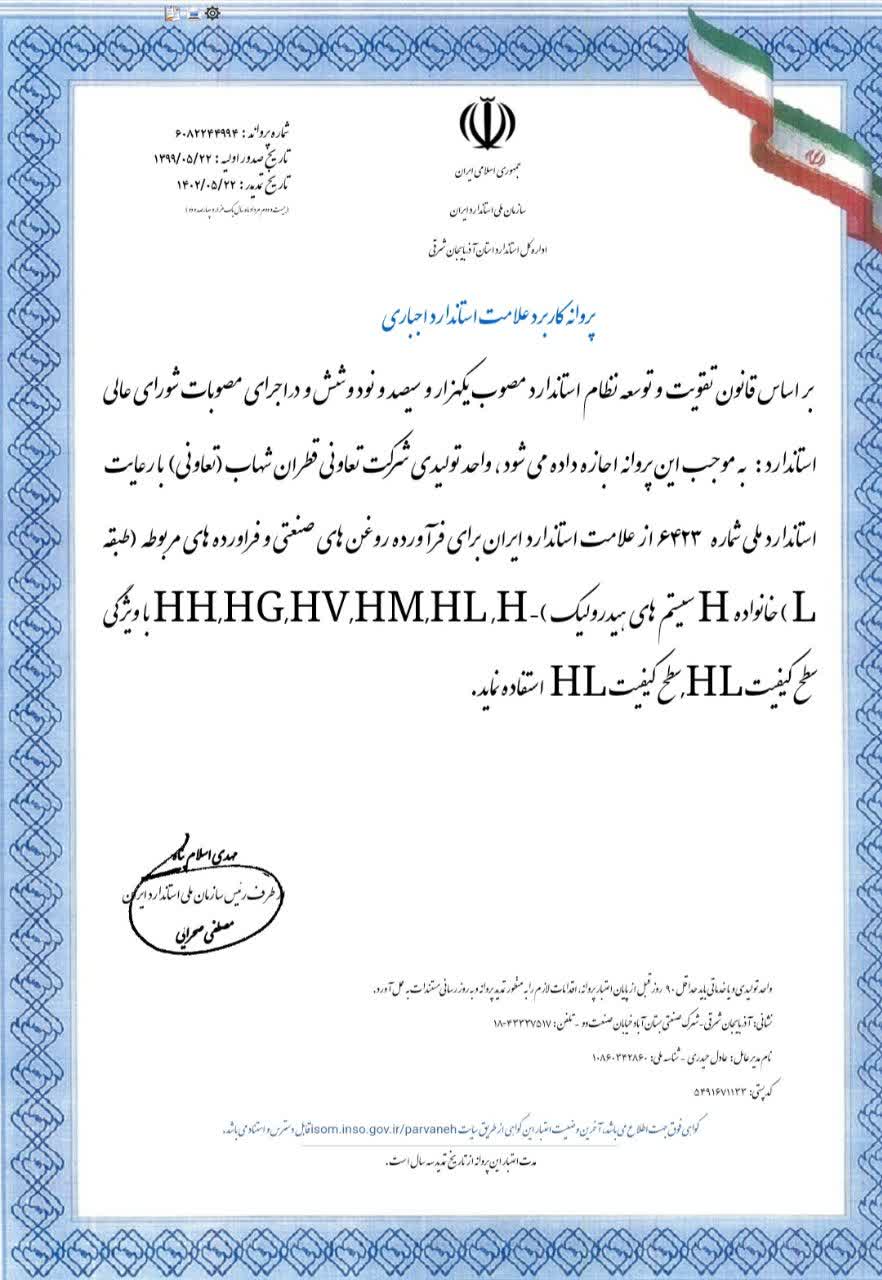 شماره پروانه : ۶۰۸۲۲۴۴۹۹۴
تاریخ صدور اولیه : ۱۳۹۹/۰۵/۲۲
تاریخ تمدید : ۱۴۰۲/۰۵/۲۲
(بیست و دوم مرداد ماه سال یک هزار و چهارصد و دو)
جمهوری اسلامی ایران
سازمان ملی استاندارد ایران
اداره کل استاندارد استان آذربایجان شرقی
پروانه کاربرد علامت استاندارد اجباری
بر اساس قانون تقویت و توسعه نظام استاندارد مصوب یکهزار و سیصد و نود و شش و در اجرای مصوبات شورای عالی
استاندارد : به موجب این پروانه اجازه داده می شود ، واحد تولیدی شرکت تعاونی قطران شهاب (تعاونی) با رعایت
استاندارد ملی شماره ۶۴۲۳ از علامت استاندارد ایران برای فرآورده روغن های صنعتی و فراورده های مربوطه (طبقه
L ) خانواده H سیستم های هیدرولیک )-HH,HG,HV,HM,HL,H با ویژگی
سطح کیفیت HL,سطح کیفیت HL استفاده نماید.
مهدی اسلام پناه
از طرف رئیس سازمان ملی استاندارد ایران
مصلفی صحرایی
واحد تولیدی و یا خدماتی باید حداقل ۹۰ روز قبل از پایان اعتبار پروانه، اقدامات لازم را به منظور تمدید پروانه و به روز رسانی مستندات به عمل آورد.
نشانی: آذربایجان شرقی - شهرک صنعتی بستان آباد خیابان صنعت دو - تلفن: ۴۳۳۳۷۵۱۷-۱۸
نام مدیر عامل: عادل حیدری - شناسه ملی: ۱۰۸۶۰۳۴۲۸۶۰
کد پستی: ۵۴۹۱۶۷۱۱۳۳
گواهی فوق جهت اطلاع می باشد، آخرین وضعیت اعتبار این گواهی از طریق سایت isom.inso.gov.ir/parvaneh قابل دسترس و استناد می باشد.
مدت اعتبار این پروانه از تاریخ تمدید سه سال است.